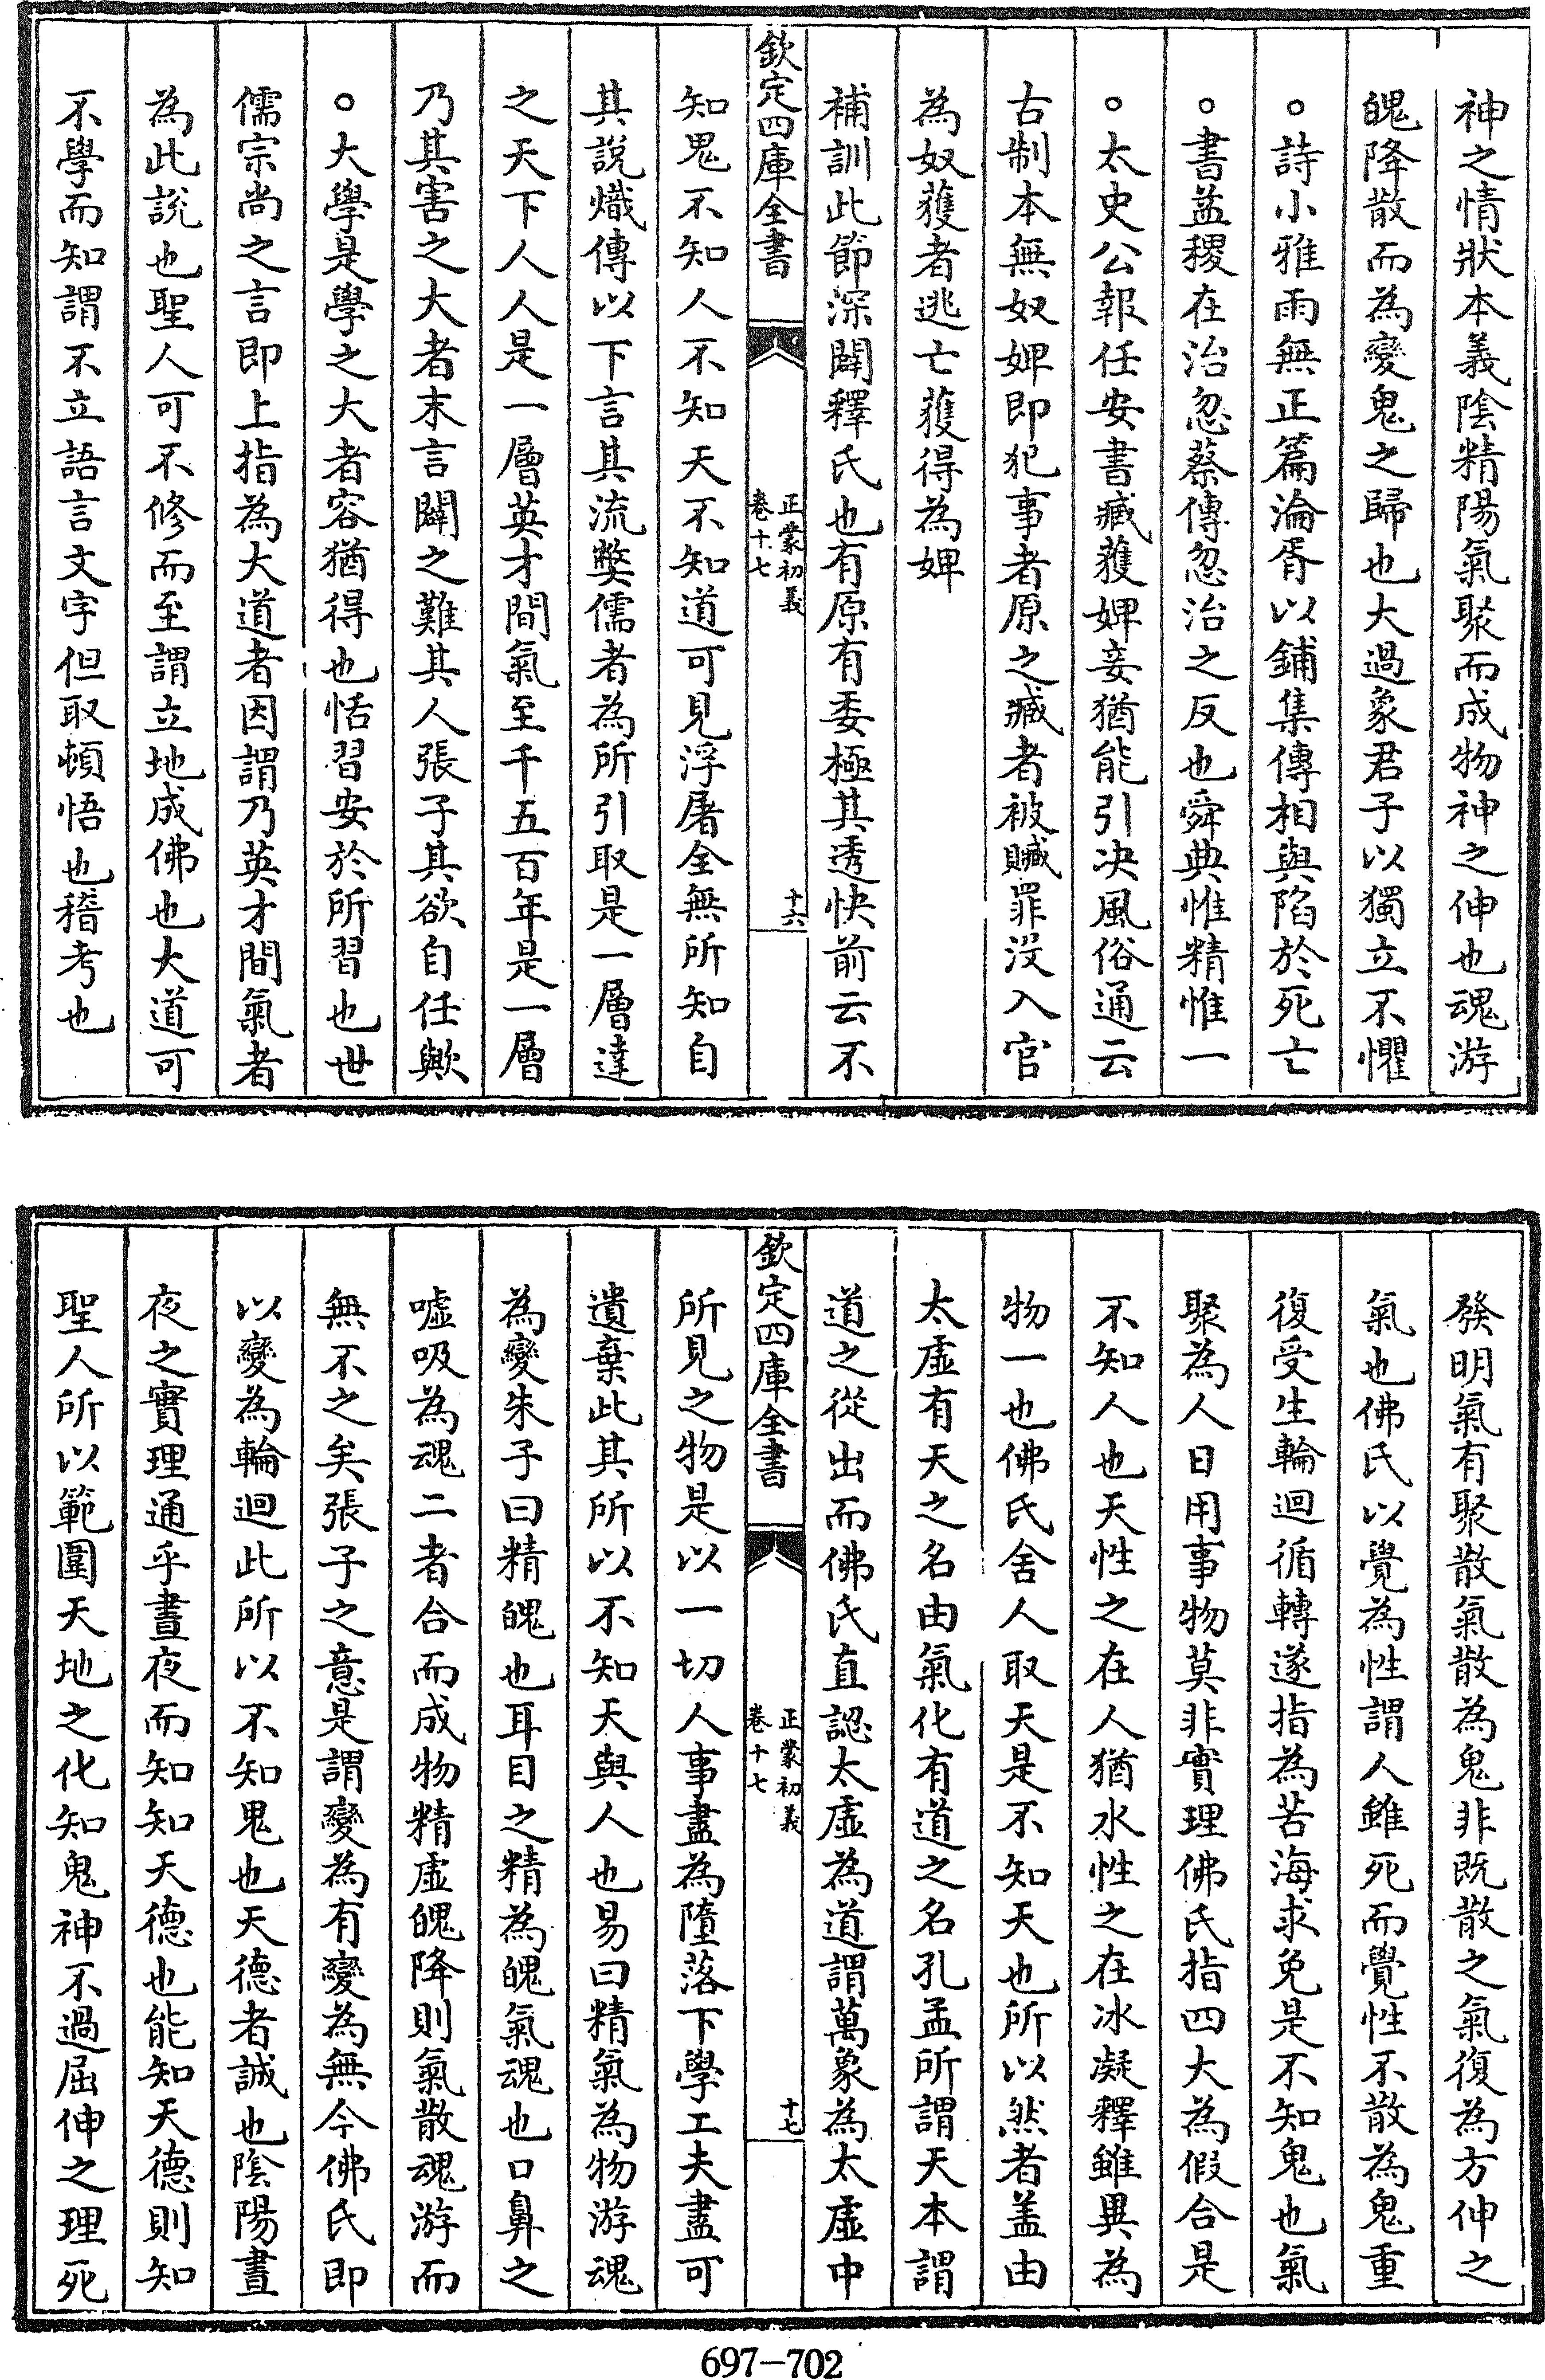 神之情狀本義陰精陽氣聚而成物神之伸也魂游
魄降散而為變鬼之歸也大過象君子以獨立不懼
○詩小雅雨無正篇淪胥以鋪集傳相與陷於死亡
○書益稷在治忽蔡傳忽治之反也舜典惟精惟一
○太史公報任安書臧獲婢妾猶能引決風俗通云
古制本無奴婢即犯事者原之臧者被贓罪沒入官
為奴獲者逃亡獲得為婢
補訓此節深闢釋氏也有原有委極其透快前云不
欽定四庫全書
正蒙初義
卷十七
十六
知鬼不知人不知天不知道可見浮屠全無所知自
其說熾傳以下言其流弊儒者為所引取是一層達
之天下人人是一層英才間氣至千五百年是一層
乃其害之大者末言闢之難其人張子其欲自任歟
○大學是學之大者容猶得也恬習安於所習也世
儒宗尚之言即上指為大道者因謂乃英才間氣者
為此說也聖人可不修而至謂立地成佛也大道可
不學而知謂不立語言文字但取頓悟也稽考也
發明氣有聚散氣散為鬼非既散之氣復為方伸之
氣也佛氏以覺為性謂人雖死而覺性不散為鬼重
復受生輪迴循轉遂指為苦海求免是不知鬼也氣
聚為人日用事物莫非實理佛氏指四大為假合是
不知人也天性之在人猶水性之在冰凝釋雖異為
物一也佛氏舍人取天是不知天也所以然者蓋由
太虛有天之名由氣化有道之名孔孟所謂天本謂
道之從出而佛氏直認太虛為道謂萬象為太虛中
欽定四庫全書
正蒙初義
卷十七
十七
所見之物是以一切人事盡為墮落下學工夫盡可
遺棄此其所以不知天與人也易曰精氣為物游魂
為變朱子曰精魄也耳目之精為魄氣魂也口鼻之
噓吸為魂二者合而成物精虛魄降則氣散魂游而
無不之矣張子之意是謂變為有變為無今佛氏即
以變為輪迴此所以不知鬼也天德者誠也陰陽晝
夜之實理通乎晝夜而知知天德也能知天德則知
聖人所以範圍天地之化知鬼神不過屈伸之理死
697-702